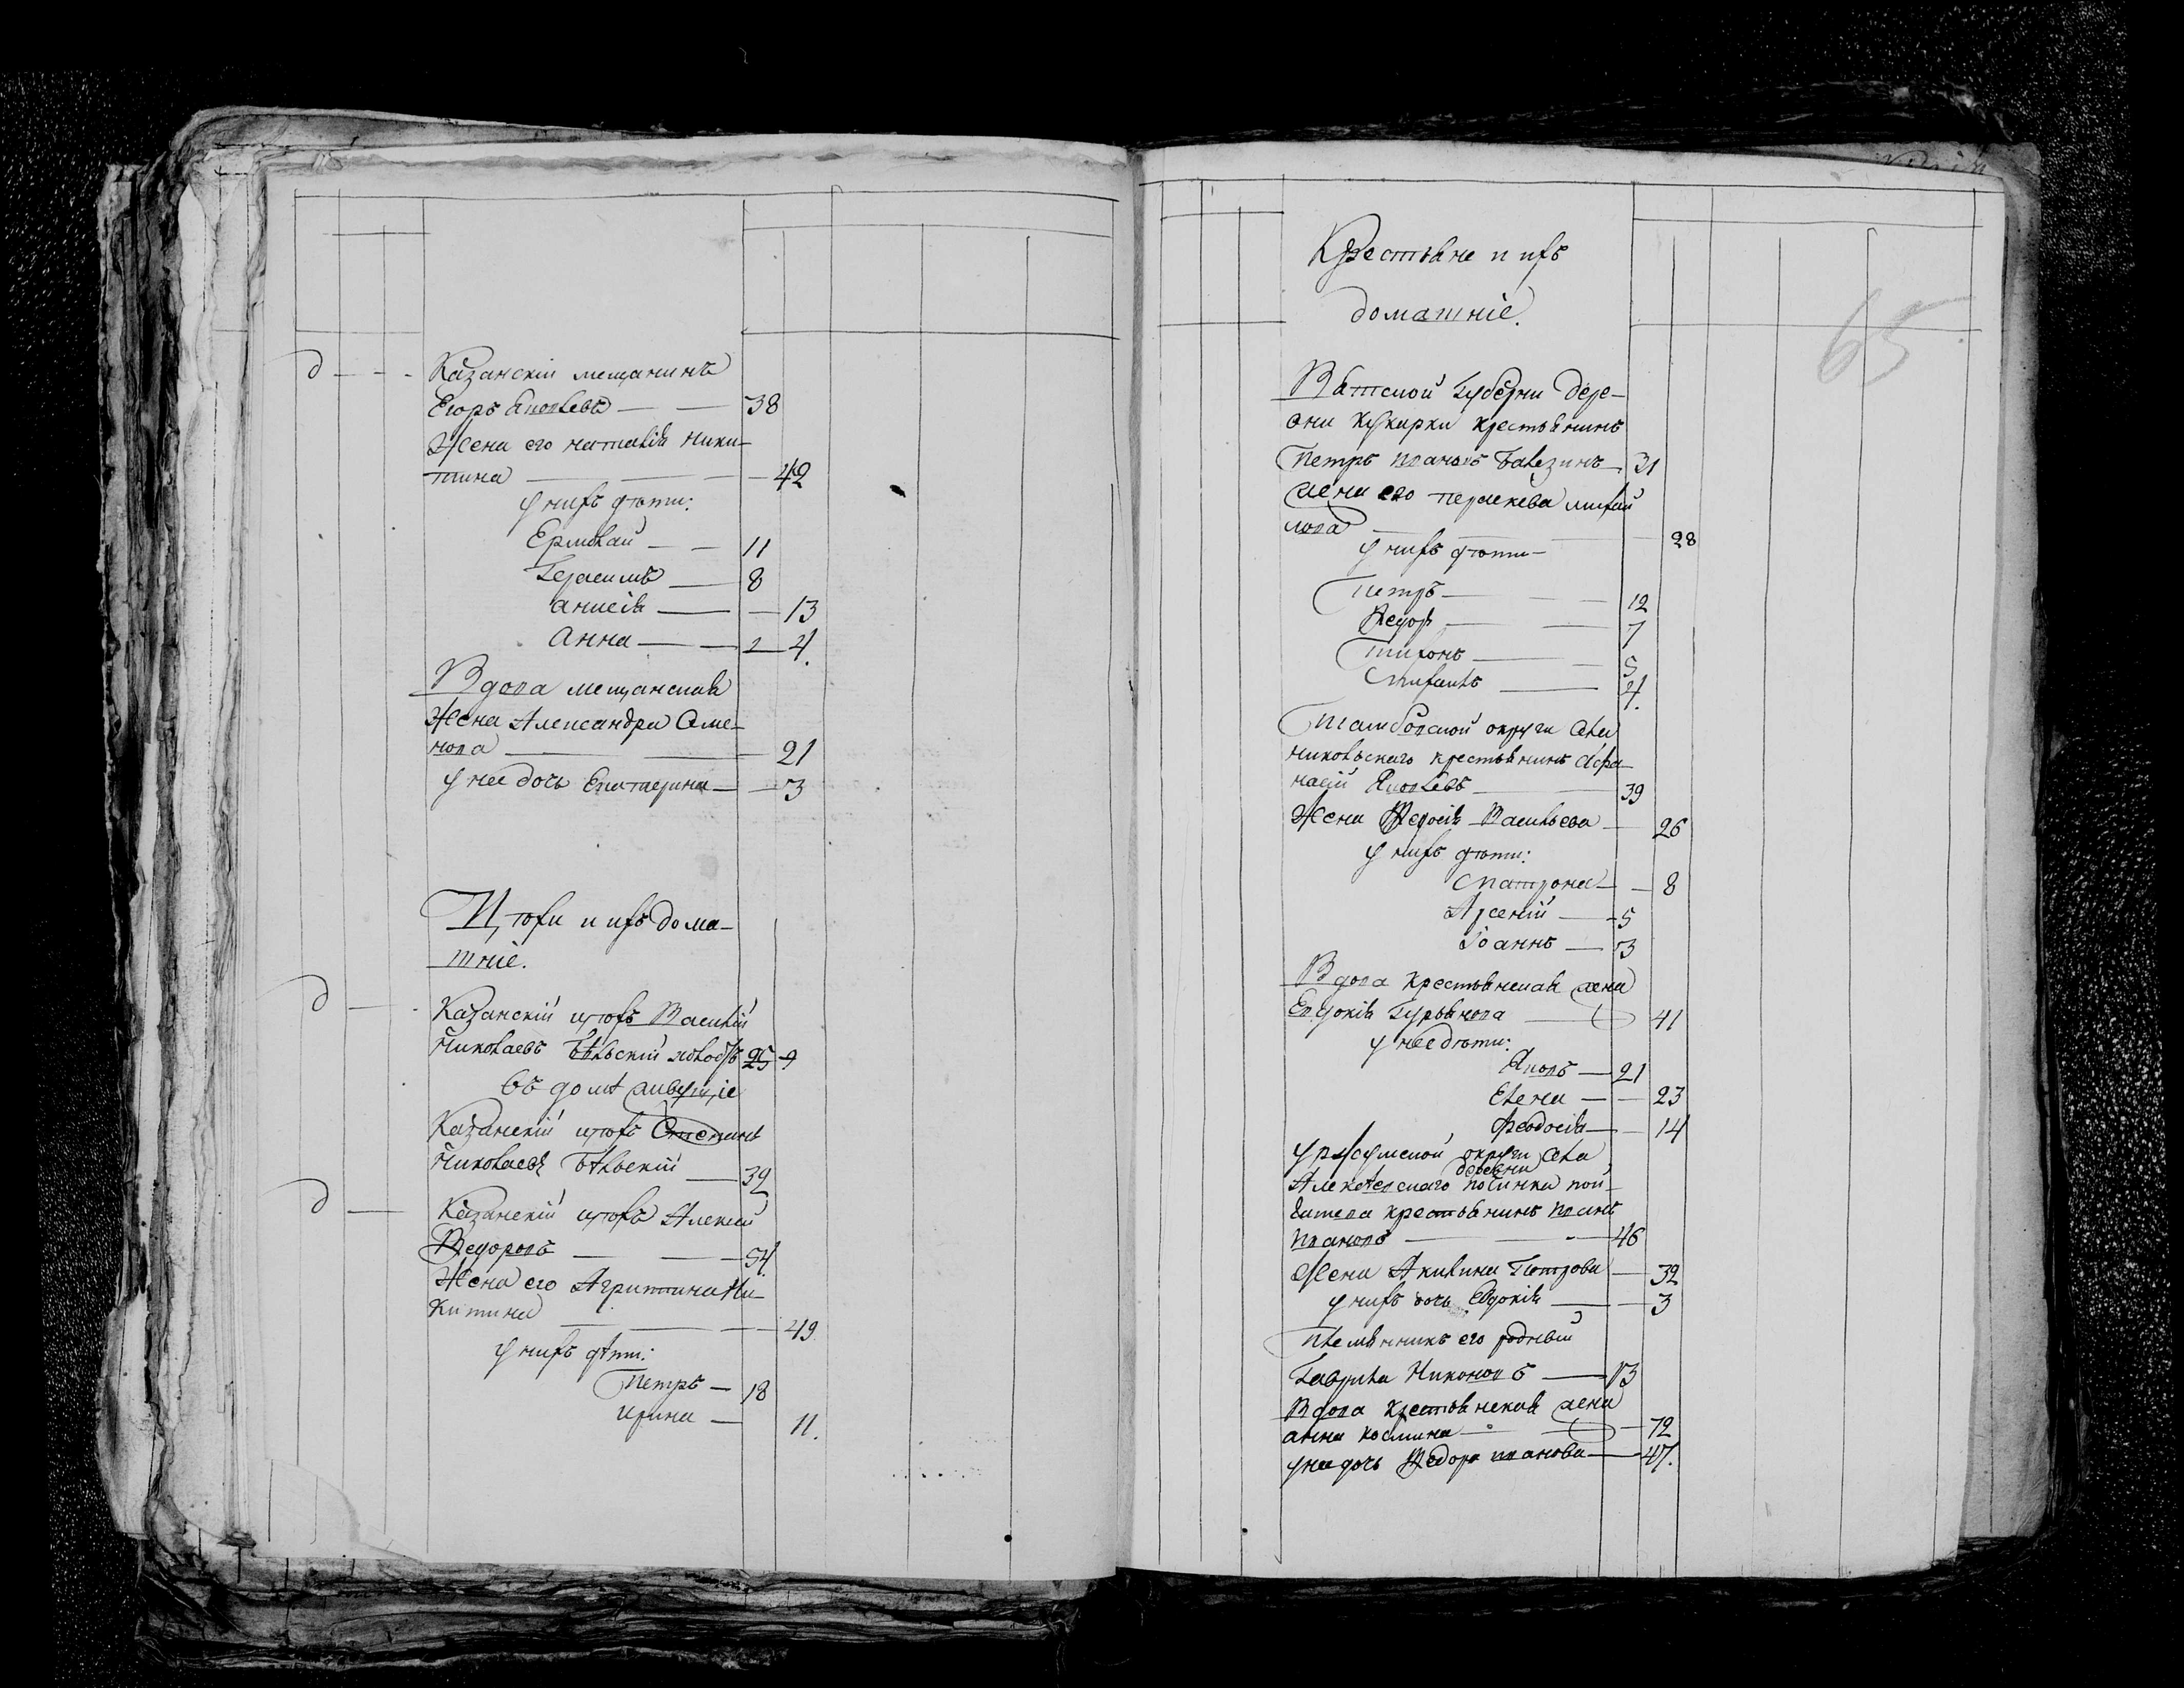 д - - - Казанскій мещанинъ
Егоръ Яковлевъ — — 38
Жена его наталія ники-
тина — — — 42
у нихъ дѣти:
Ермолай — — 11
Герасимъ — 8
анисія — — 13
Анна — — 2 — 4.
Вдова мещанская
Жена Александра Симе-
нова — — 21
у нее дочь Екатерина — — 3
Цѣхи и ихъ дома-
шніе.
д — Казанскій цѣхъ Василій
Николаевъ Бѣльскій холостъ 25
въ домѣ живущіе
Казанскій цѣхъ Степанъ
Николаевъ Бѣльскій — 39
д — Казанскій цѣхъ Алексій
Федоровъ — — 54.
Жена его Агрипина Ни-
китина — — — 49
у нихъ дѣти:
Петръ — 18
ирина — 11.
Крестьяне и ихъ
домашніе.
65
Вятской Губерни дере-
вни Кукарки крестьянинъ
Петръ Ивановъ Балезинъ — 31
жена его Параскева михай
лова — — 28
у нихъ дѣти —
Петръ — — 12
Федоръ — — 7
Тихонъ — — 5
Михаилъ — 4.
Тамбовской округи села
никольскаго крестьянинъ Афа-
насій Яковлевъ — 39
Жена Федосія Васильева — 26
у нихъ дѣти:
Матрона — — 8
Арсеній — 5
Іоаннъ — 3
Вдова крестьянская жена
Евдокія Гурьянова — 41
у нее дѣти:
Яковъ — 21
Елена — — 23
Феодосія — — 14
уржумской округи села
деревни
починка
крестьянинъ Иванъ
Ивановъ — — 46
Жена Акилина Петрова — 32
у нихъ дочь Евдокія — — 3
племянникъ его родный
Гаврила Никоновъ — 13
Вдова крестьянская жена
анна космина — — 72
у нее дочь Федора иванова — 47.